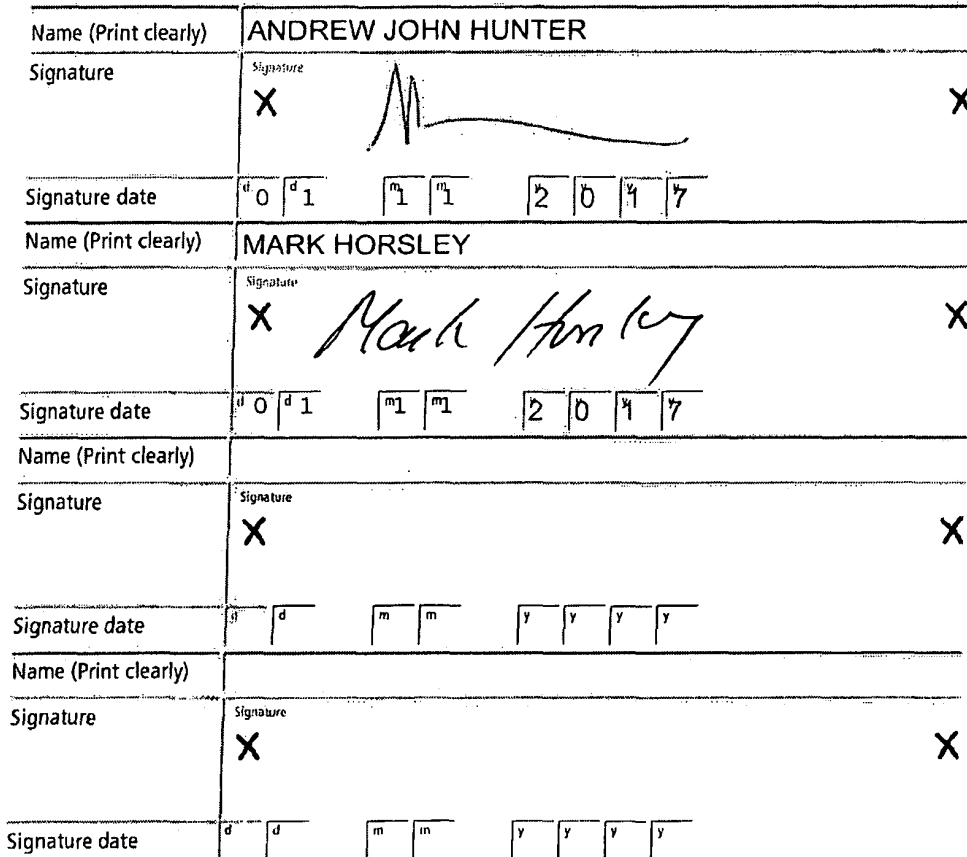 Name (Print clearly) ANDREW JOHN HUNTER
Signature Signature
X X
Signature date d0 d1 m1 m1 y2 y0 y1 y7
Name (Print clearly) MARK HORSLEY
Signature Signature
X Mark Horsley X
Signature date d0 d1 m1 m1 y2 y0 y1 y7
Name (Print clearly)
Signature Signature
X X
Signature date d d m m y y y y
Name (Print clearly)
Signature Signature
X X
Signature date d d m m y y y y